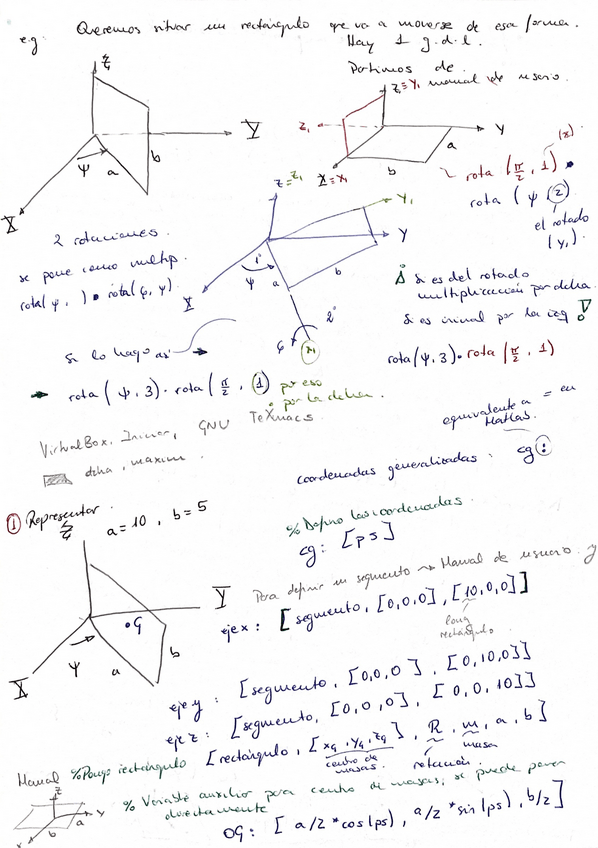 e.g. Queremos situar un rectángulo que va a moverse de esa forma.
Hay 1 g.d.l.
Partimos de
manual de usuario.
Z
Y
X
ψ
a
b
Z≡Y₁
Z₁
Y
X≡X₁
b
a
rota (π/2, 1)
rota (ψ, 2)
el rotado
(y₁)
2 rotaciones.
se pone como multip.
rotal(φ, ) • rotal(φ, ψ).
Z=Z₁
Y₁
Y
X
ψ
1º
a
b
2º
φ
X₁
Si es del rotado
multiplicación por dcha.
si es inicial por la izq
rota(ψ,3)·rota(π/2, 1)
Si lo hago así →
→ rota (ψ, 3) · rota (π/2, 1) por eso
por la dcha.
VirtualBox, Iniciar, GNU TeXmacs
dcha, maxim.
equivalente a = en
Matlab.
coordenadas generalizadas: cg:
① Representar. a=10, b=5
Z
Y
X
G
ψ
a
b
% Defino las coordenadas.
cg: [ps]
Para definir un segmento → Manual de usuario. y
eje x: [segmento, [0,0,0], [10,0,0]]
long
rectángulo.
eje y: [segmento, [0,0,0], [0,10,0]]
eje z: [segmento, [0,0,0], [0,0,10]]
Manual %Pongo rectángulo [rectángulo, [xg, yg, zg], R, m, a, b]
centro de
masas.
rotación
masa
% Variable auxiliar para centro de masas, se puede poner
directamente
z
y
a
b
OG: [a/2*cos(ps), a/2*sin(ps), b/2]